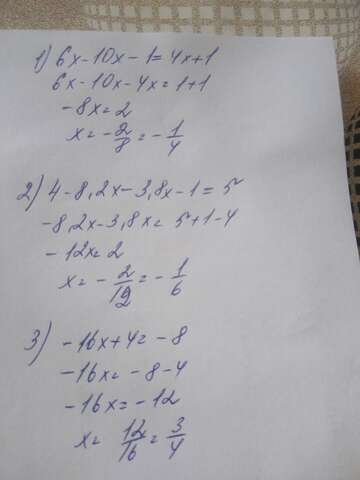 1) 6x-10x-1=4x+1
6x-10x-4x=1+1
-8x=2
x=-2/8=-1/4
2) 4-8,2x-3,8x-1=5
-8,2x-3,8x=5+1-4
-12x=2
x=-2/12=-1/6
3) -16x+4=-8
-16x=-8-4
-16x=-12
x=12/16=3/4